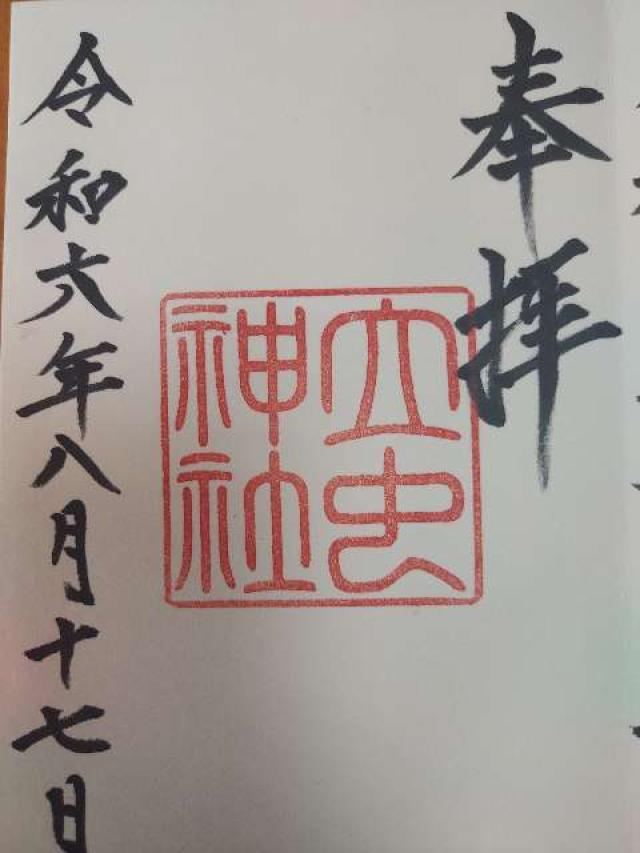 奉拝
立虫
神社
令和六年八月十七日